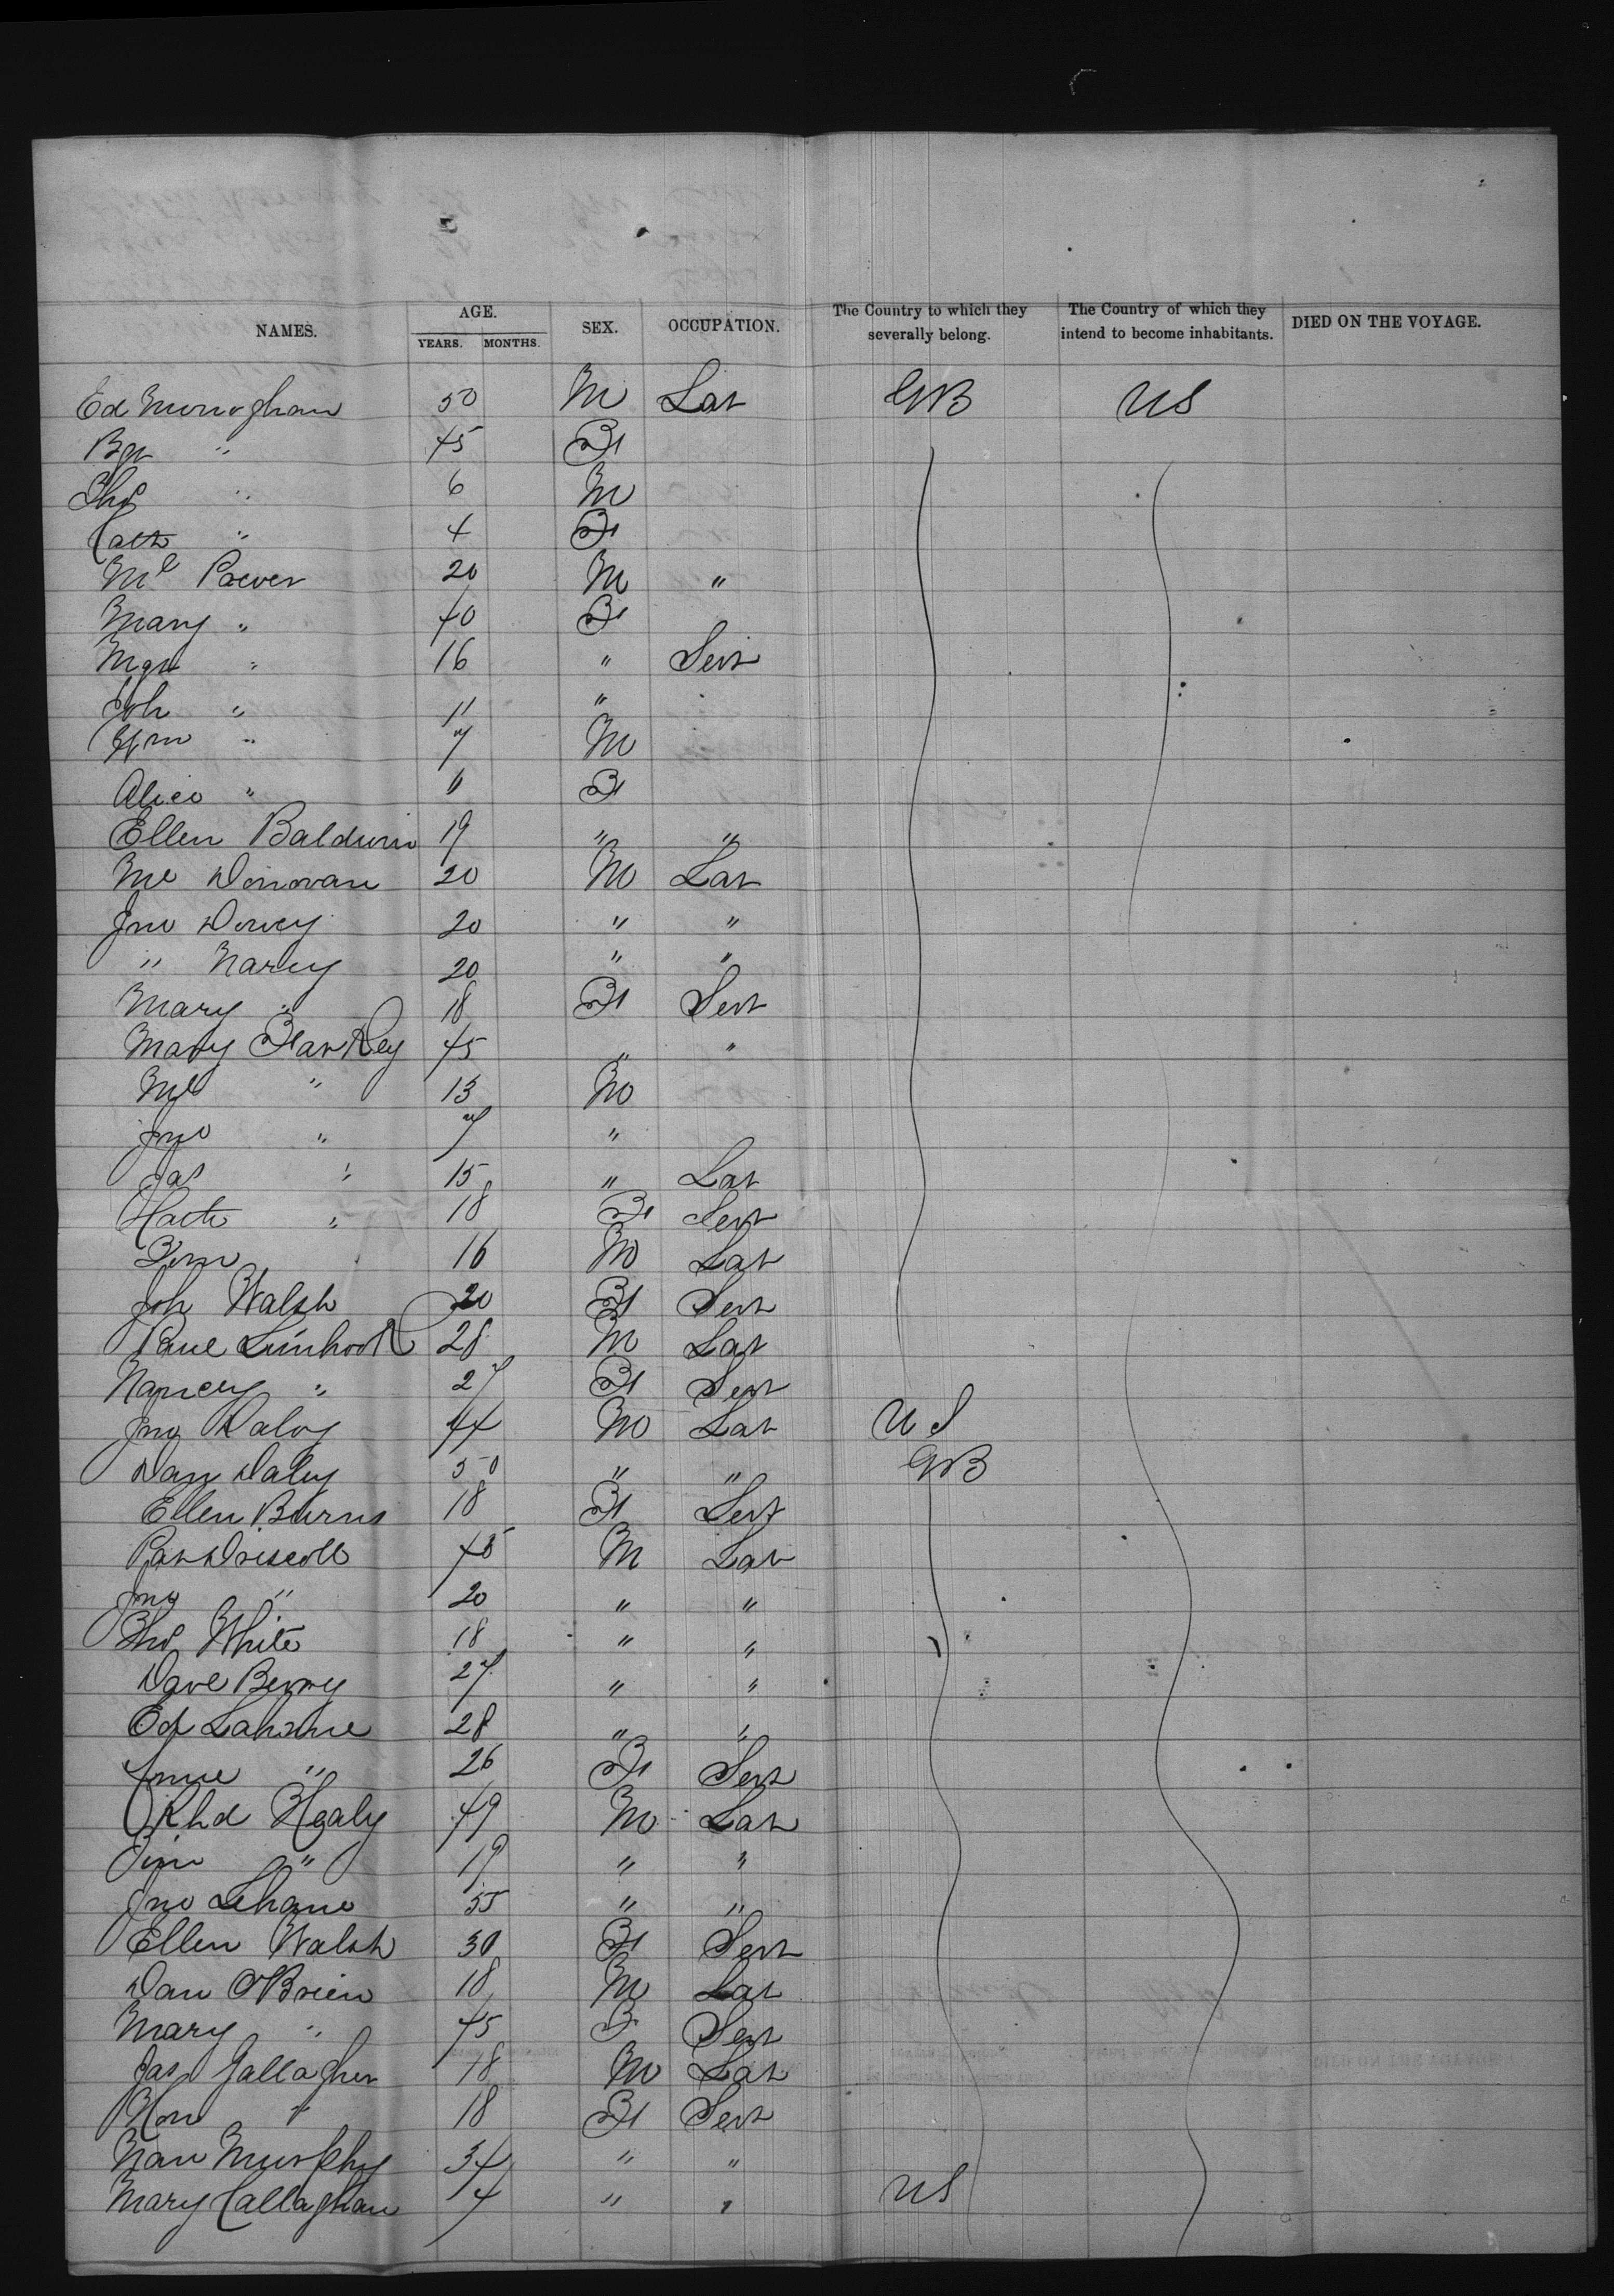 NAMES. AGE. YEARS. MONTHS. SEX. OCCUPATION. The Country to which they severally belong. The Country of which they intend to become inhabitants. DIED ON THE VOYAGE.
Ed Monoghan 50 M Lab GB US
Bgt " 45 F
Thos " 6 M
Cath " 4 F
Ml Power 20 M "
Mary " 40 F
Mgt " 16 " Servt
Joh " 11 "
Wm " 7 M
Alice " 11 F
Ellen Baldwin 19 " "
Ml Donovan 20 M Lab
Jno Dowey 20 " "
" Narey 20 " "
Mary " 18 F Servt
Mary 45 " "
Ml " 13 M
Jno " 7 "
Jas " 15 " Lab
Cath " 18 F Servt
16 M Lab
Joh Walsh 20 F Servt
28 M Lab
Nancy " 27 F Servt
Jno Daley 44 M Lab US
Dan Daley 50 " " GB
Ellen Burns 18 F Servt
Pat Driscoll 45 M Lab
Jno " 20 " "
Thos White 18 " "
Dave Berry 27 " "
Ed 28 " "
" 26 F Servt
Rhd Healy 49 M Lab
Tim " 19 " "
Jno Lehane 55 " "
Ellen Walsh 30 F Servt
Dan OBrien 18 M Lab
Mary " 45 F Servt
Jas Gallagher 18 M Lab
Hon " 18 F Servt
Nan Murphy 34 " "
Mary Callaghan 4 " " US